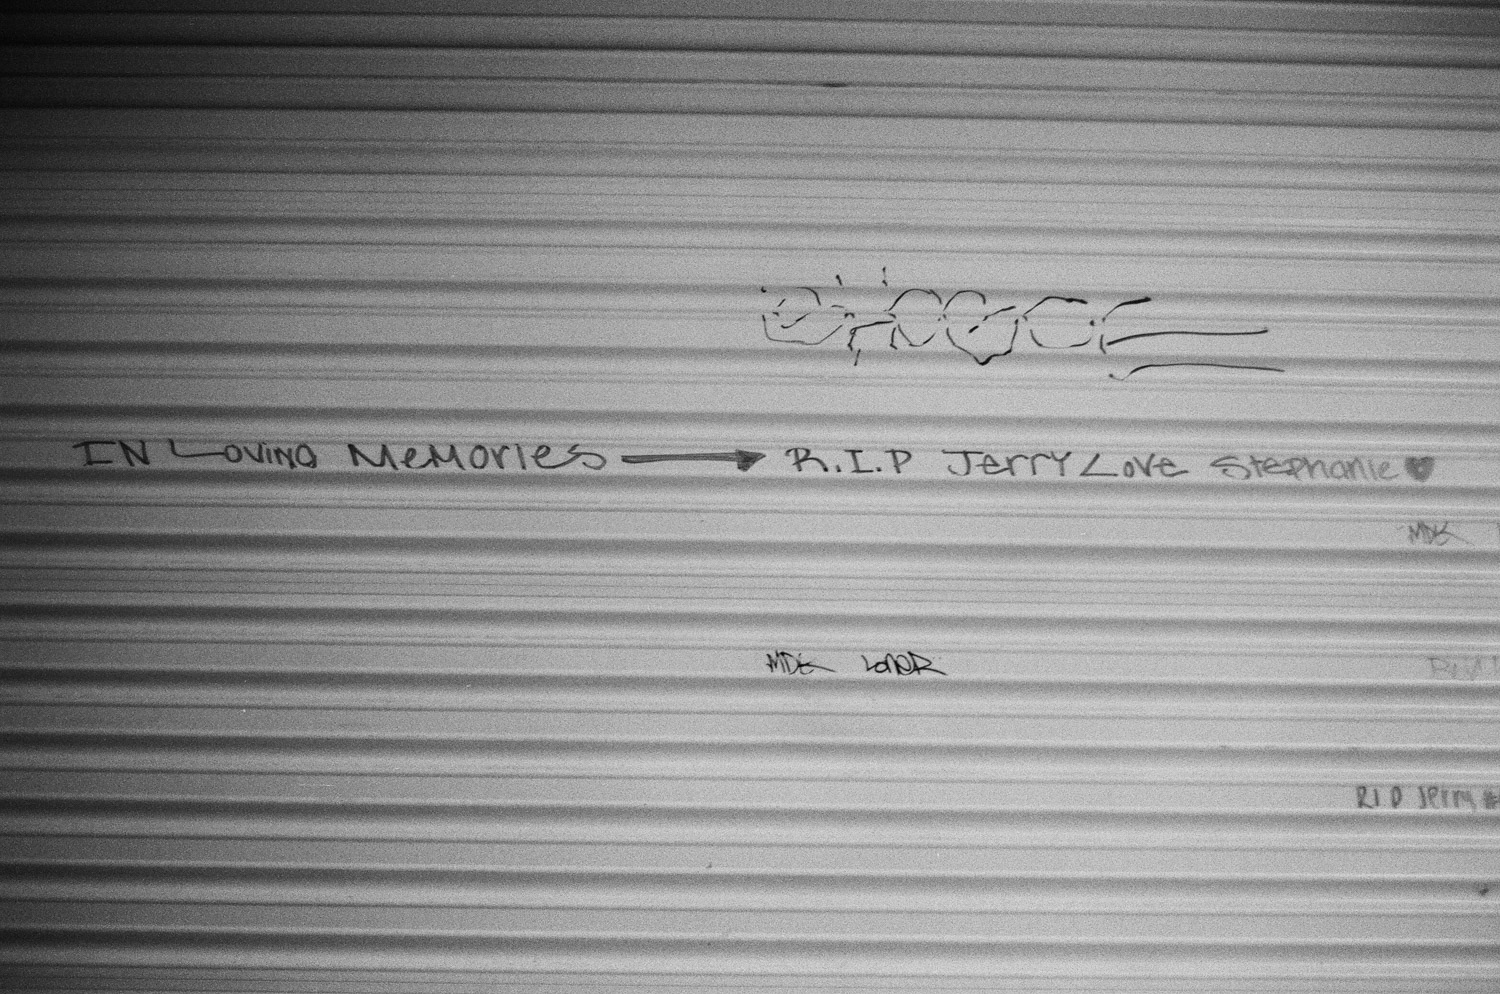 IN Loving Memories → R.I.P Jerry Love Stephanie ♥
MDK
MDK LONER
RIP Jerry